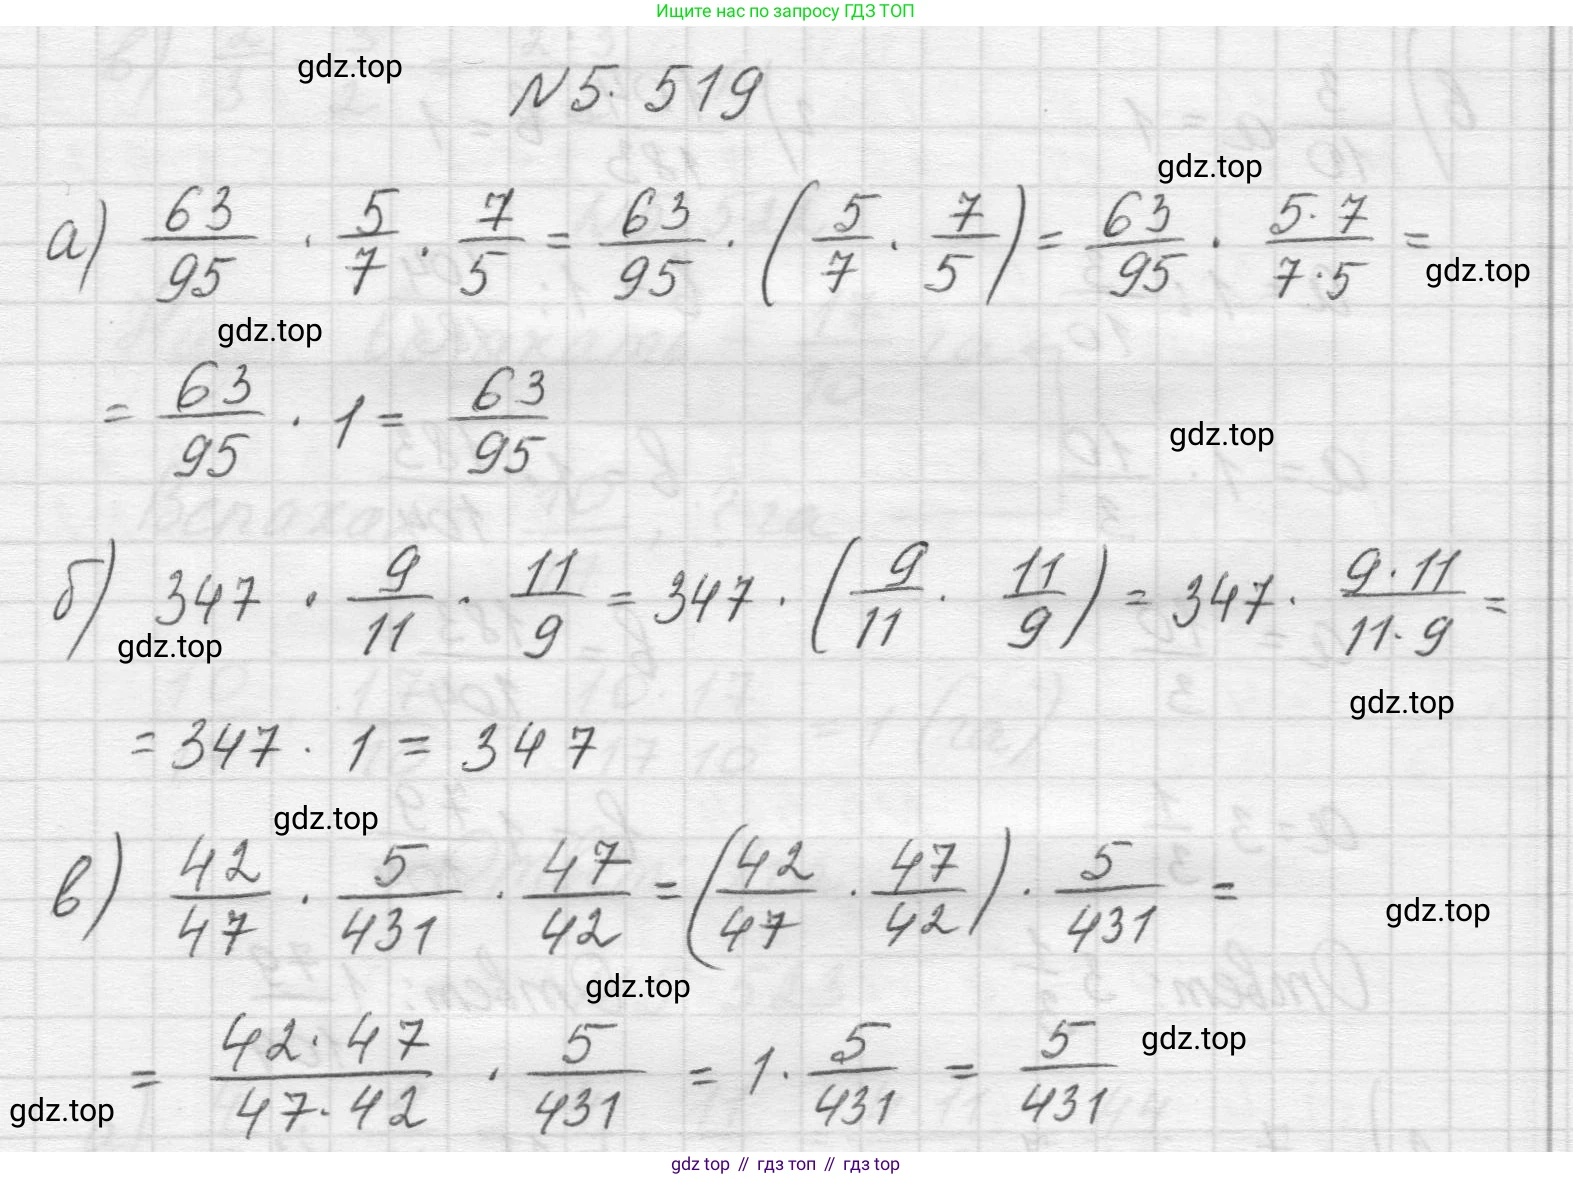 Ищите нас по запросу ГДЗ ТОП
gdz.top
№5.519
gdz.top
а) 63/95 · 5/7 · 7/5 = 63/95 · (5/7 · 7/5) = 63/95 · 5·7/7·5 =
gdz.top
gdz.top
= 63/95 · 1 = 63/95
gdz.top
б) 347 · 9/11 · 11/9 = 347 · (9/11 · 11/9) = 347 · 9·11/11·9 =
gdz.top
gdz.top
= 347 · 1 = 347
gdz.top
в) 42/47 · 5/431 · 47/42 = (42/47 · 47/42) · 5/431 =
gdz.top
gdz.top
= 42·47/47·42 · 5/431 = 1 · 5/431 = 5/431
gdz.top
gdz.top
gdz top // гдз топ // гдз top